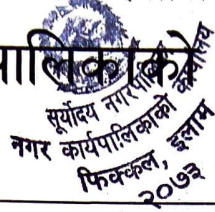 पालिकाको
सूर्योदय नगरपालिका
नगर कार्यपालिकाको कार्यालय
फिक्कल, इलाम
२०७३